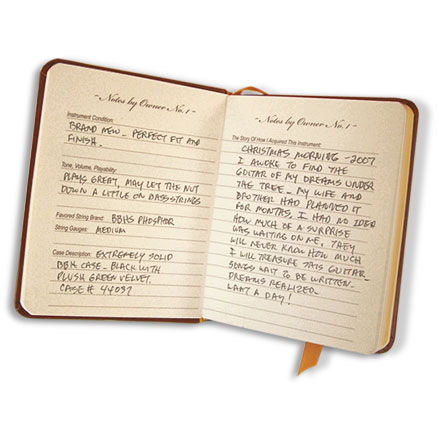 ~Notes by Owner No. 1~
Instrument Condition:
BRAND NEW - PERFECT FIT AND
FINISH.
Tone, Volume, Playability:
PLAYS GREAT, MAY LET THE NUT
DOWN A LITTLE ON BASS STRINGS
Favored String Brand: BBHS PHOSPHOR
String Gauges: MEDIUM
Case Description: EXTREMELY SOLID
CASE - BLACK WITH
PLUSH GREEN VELVET.
CASE # 44037
~Notes by Owner No. 1~
The Story Of How I Acquired This Instrument:
CHRISTMAS MORNING - 2007
I AWOKE TO FIND THE
GUITAR OF MY DREAMS UNDER
THE TREE - MY WIFE AND
BROTHER HAD PLANNED IT
FOR MONTHS, I HAD NO IDEA
HOW MUCH OF A SURPRISE
WAS WAITING ON ME, THEY
WILL NEVER KNOW HOW MUCH
I WILL TREASURE THIS GUITAR -
SONGS WAIT TO BE WRITTEN -
DREAMS REALIZED -
A DAY!